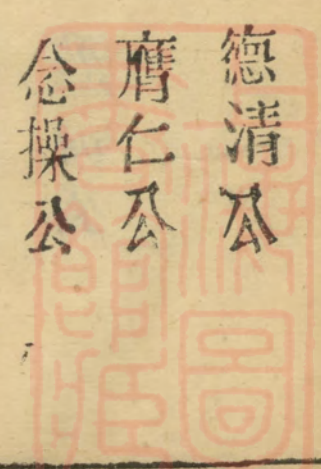 德清公
膺仁公
念操公